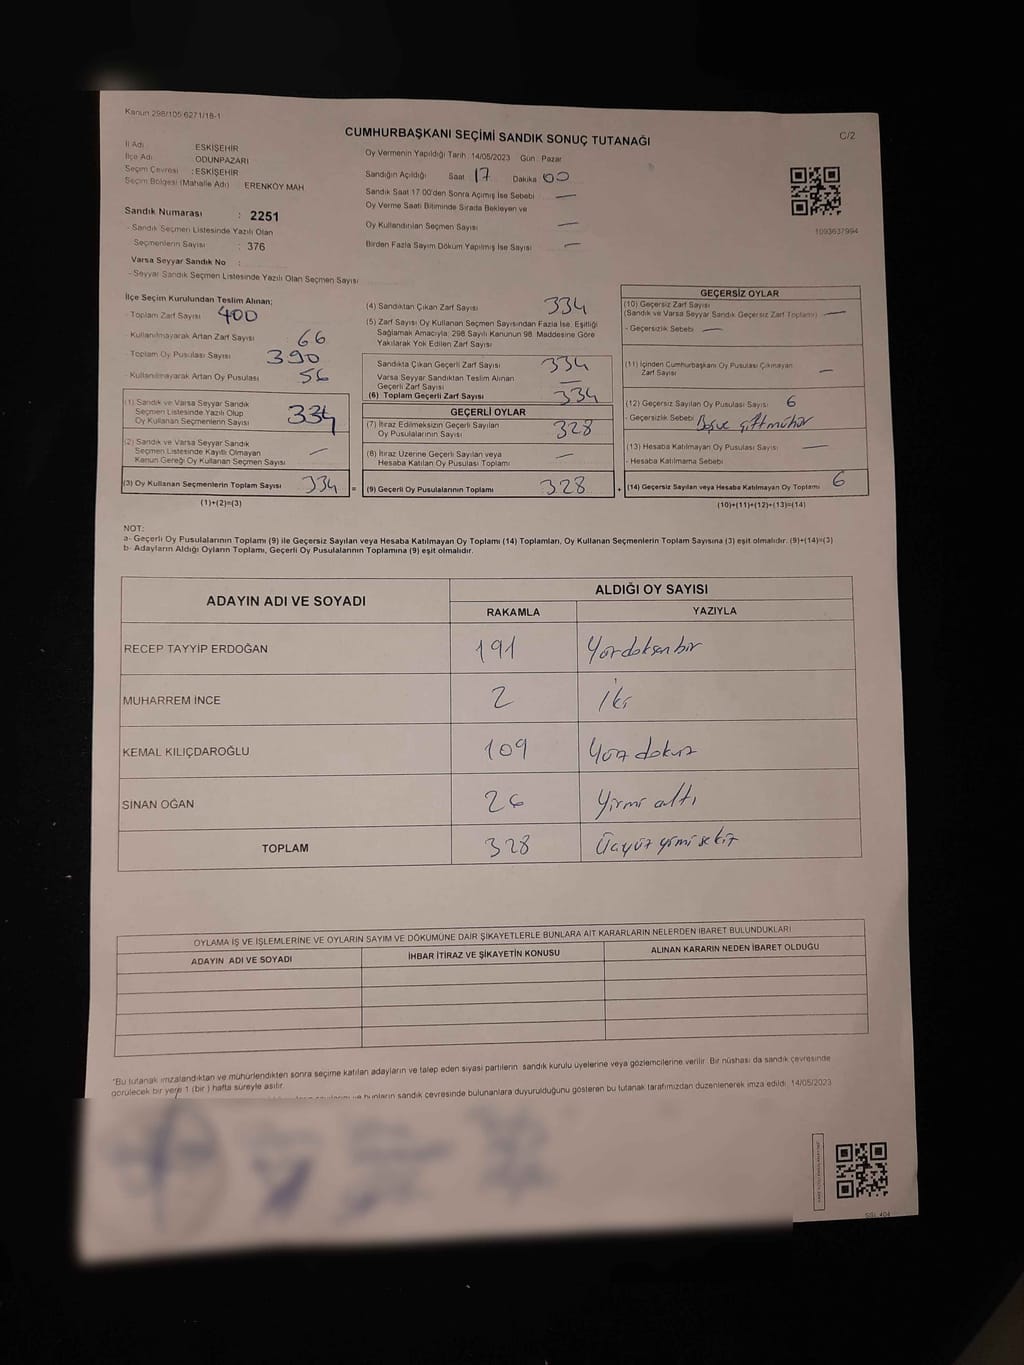 Kanun 298/105 6271/18-1
CUMHURBAŞKANI SEÇİMİ SANDIK SONUÇ TUTANAĞI
C/2
İl Adı : ESKİŞEHİR
İlçe Adı : ODUNPAZARI
Seçim Çevresi : ESKİŞEHİR
Seçim Bölgesi (Mahalle Adı) : ERENKÖY MAH
Sandık Numarası : 2251
- Sandık Seçmen Listesinde Yazılı Olan
Seçmenlerin Sayısı : 376
Varsa Seyyar Sandık No :
- Seyyar Sandık Seçmen Listesinde Yazılı Olan Seçmen Sayısı
Oy Vermenin Yapıldığı Tarih : 14/05/2023 Gün : Pazar
Sandığın Açıldığı Saat 17 Dakika 00
Sandık Saat 17:00'den Sonra Açılmış İse Sebebi —
Oy Verme Saati Bitiminde Sırada Bekleyen ve
Oy Kullandırılan Seçmen Sayısı —
Birden Fazla Sayım Döküm Yapılmış İse Sayısı —
1093637994
İlçe Seçim Kurulundan Teslim Alınan;
- Toplam Zarf Sayısı 400
- Kullanılmayarak Artan Zarf Sayısı 66
- Toplam Oy Pusulası Sayısı 390
- Kullanılmayarak Artan Oy Pusulası 56
(1) Sandık ve Varsa Seyyar Sandık
Seçmen Listesinde Yazılı Olup
Oy Kullanan Seçmenlerin Sayısı 334
(2) Sandık ve Varsa Seyyar Sandık
Seçmen Listesinde Kayıtlı Olmayan
Kanun Gereği Oy Kullanan Seçmen Sayısı —
(3) Oy Kullanan Seçmenlerin Toplam Sayısı 334
(1)+(2)=(3)
(4) Sandıktan Çıkan Zarf Sayısı 334
(5) Zarf Sayısı Oy Kullanan Seçmen Sayısından Fazla İse, Eşitliği
Sağlamak Amacıyla, 298 Sayılı Kanunun 98. Maddesine Göre
Yakılarak Yok Edilen Zarf Sayısı
Sandıkta Çıkan Geçerli Zarf Sayısı 334
Varsa Seyyar Sandıktan Teslim Alınan
Geçerli Zarf Sayısı —
(6) Toplam Geçerli Zarf Sayısı 334
GEÇERLİ OYLAR
(7) İtiraz Edilmeksizin Geçerli Sayılan
Oy Pusulalarının Sayısı 328
(8) İtiraz Üzerine Geçerli Sayılan veya
Hesaba Katılan Oy Pusulası Toplamı —
= (9) Geçerli Oy Pusulalarının Toplamı 328
GEÇERSİZ OYLAR
(10) Geçersiz Zarf Sayısı
(Sandık ve Varsa Seyyar Sandık Geçersiz Zarf Toplamı) —
- Geçersizlik Sebebi —
(11) İçinden Cumhurbaşkanı Oy Pusulası Çıkmayan
Zarf Sayısı —
(12) Geçersiz Sayılan Oy Pusulası Sayısı 6
- Geçersizlik Sebebi Boş ve çift mühür
(13) Hesaba Katılmayan Oy Pusulası Sayısı —
- Hesaba Katılmama Sebebi
+ (14) Geçersiz Sayılan veya Hesaba Katılmayan Oy Toplamı 6
(10)+(11)+(12)+(13)=(14)
NOT:
a- Geçerli Oy Pusulalarının Toplamı (9) ile Geçersiz Sayılan veya Hesaba Katılmayan Oy Toplamı (14) Toplamları, Oy Kullanan Seçmenlerin Toplam Sayısına (3) eşit olmalıdır. (9)+(14)=(3)
b- Adayların Aldığı Oyların Toplamı, Geçerli Oy Pusulalarının Toplamına (9) eşit olmalıdır.
ADAYIN ADI VE SOYADI
ALDIĞI OY SAYISI
RAKAMLA YAZIYLA
RECEP TAYYİP ERDOĞAN 191 Yüzdoksanbir
MUHARREM İNCE 2 İki
KEMAL KILIÇDAROĞLU 109 Yüz dokuz
SİNAN OĞAN 26 Yirmi altı
TOPLAM 328 Üçyüz yirmi sekiz
OYLAMA İŞ VE İŞLEMLERİNE VE OYLARIN SAYIM VE DÖKÜMÜNE DAİR ŞİKAYETLERLE BUNLARA AİT KARARLARIN NELERDEN İBARET BULUNDUKLARI
ADAYIN ADI VE SOYADI İHBAR İTİRAZ VE ŞİKAYETİN KONUSU ALINAN KARARIN NEDEN İBARET OLDUĞU
"Bu tutanak imzalandıktan ve mühürlendikten sonra seçime katılan adayların ve talep eden siyasi partilerin sandık kurulu üyelerine veya gözlemcilerine verilir. Bir nüshası da sandık çevresinde
görülecek bir yere 1 (bir) hafta süreyle asılır.
bunların sandık çevresinde bulunanlara duyurulduğunu gösteren bu tutanak tarafımızdan düzenlenerek imza edildi. 14/05/2023
SSL 404